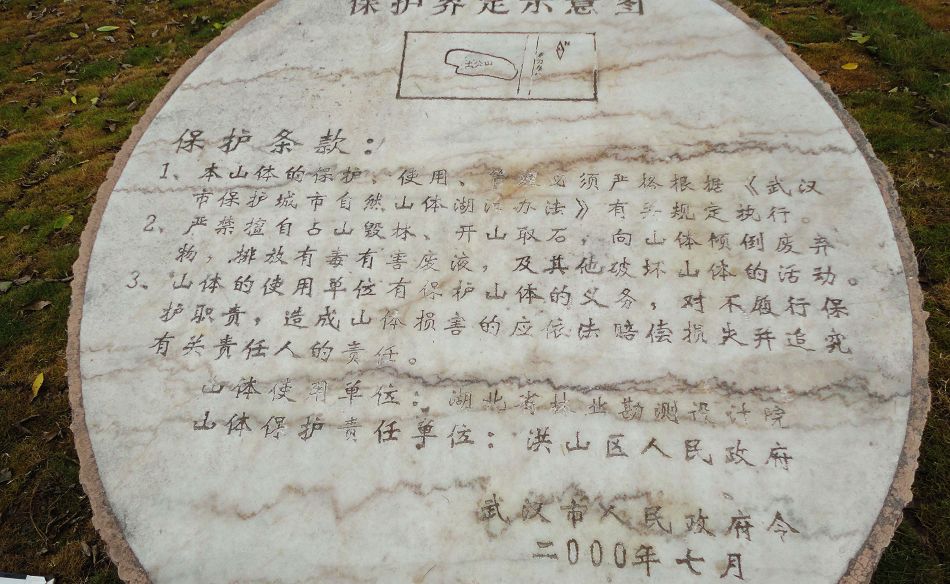 保护界定示意图
土公山
N
保护条款：
1、本山体的保护、使用、管理必须严格根据《武汉
市保护城市自然山体湖泊办法》有关规定执行。
2、严禁擅自占山毁林、开山取石，向山体倾倒废弃
物，排放有毒有害废液，及其他破坏山体的活动。
3、山体的使用单位有保护山体的义务，对不履行保
护职责，造成山体损害的应依法赔偿损失并追究
有关责任人的责任。
山体使用单位：湖北省林业勘测设计院
山体保护责任单位：洪山区人民政府
武汉市人民政府令
二000年七月